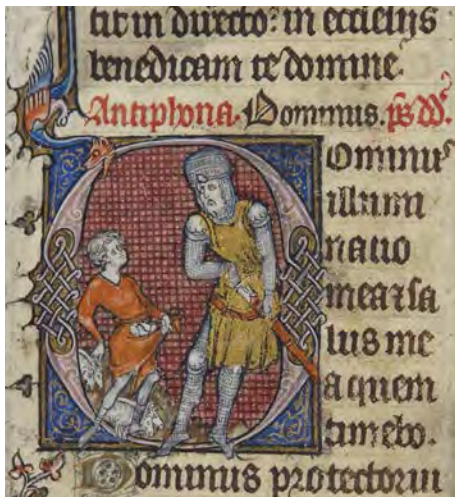 tit in directo: in ecclesijs
benedicam te domine.
Antiphona. Dominus. ps dd.
Dominus
illumi
natio
mea et sa
lus me
a quem
timebo.
Dominus protector ui